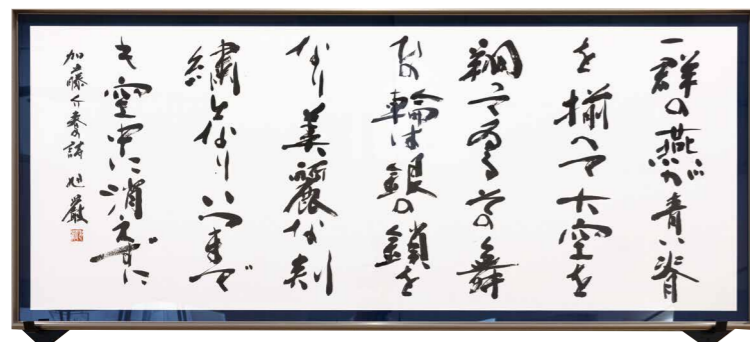 一群の燕が青い脊
を揃へて大空を
翔つてゐるその舞
ひの輪は銀の鎖を
なり美麗な刺
繍となりいつまで
も空中に消えずに
加藤介春の詩 旭巌